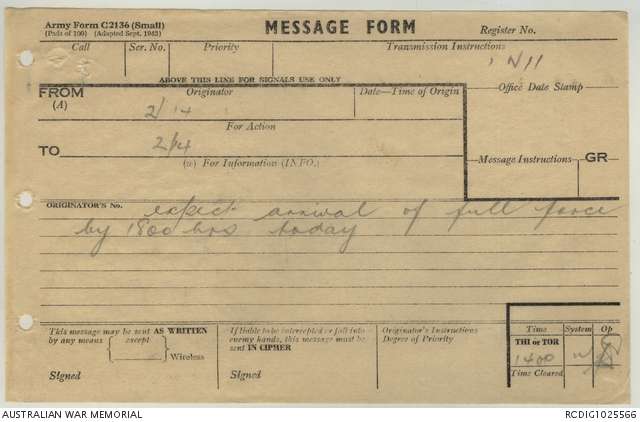 Army Form C2136 (Small)
(Pads of 100) (Adapted Sept. 1942)
MESSAGE FORM
Register No.
Call
Ser. No.
Priority
Transmission Instructions
ABOVE THIS LINE FOR SIGNALS USE ONLY
FROM
(A)
Originator
2/14
Date—Time of Origin
Office Date Stamp
For Action
TO
2/4
(w) For Information (INFO.)
Message Instructions
GR
ORIGINATOR'S No.
expect arrival of full force
by 1800 hrs today
This message may be sent AS WRITTEN
by any means except
Wireless
Signed
If liable to be intercepted or fall into
enemy hands, this message must be
sent IN CIPHER
Signed
Originator's Instructions
Degree of Priority
Time
System
Op
THI or TOR
1400
Time Cleared
AUSTRALIAN WAR MEMORIAL
RCDIG1025566